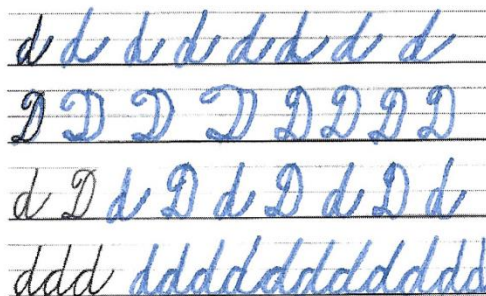 d d d d d d d d
D D D D D D D D
d D d D d D d D d
ddd dddddddddddd